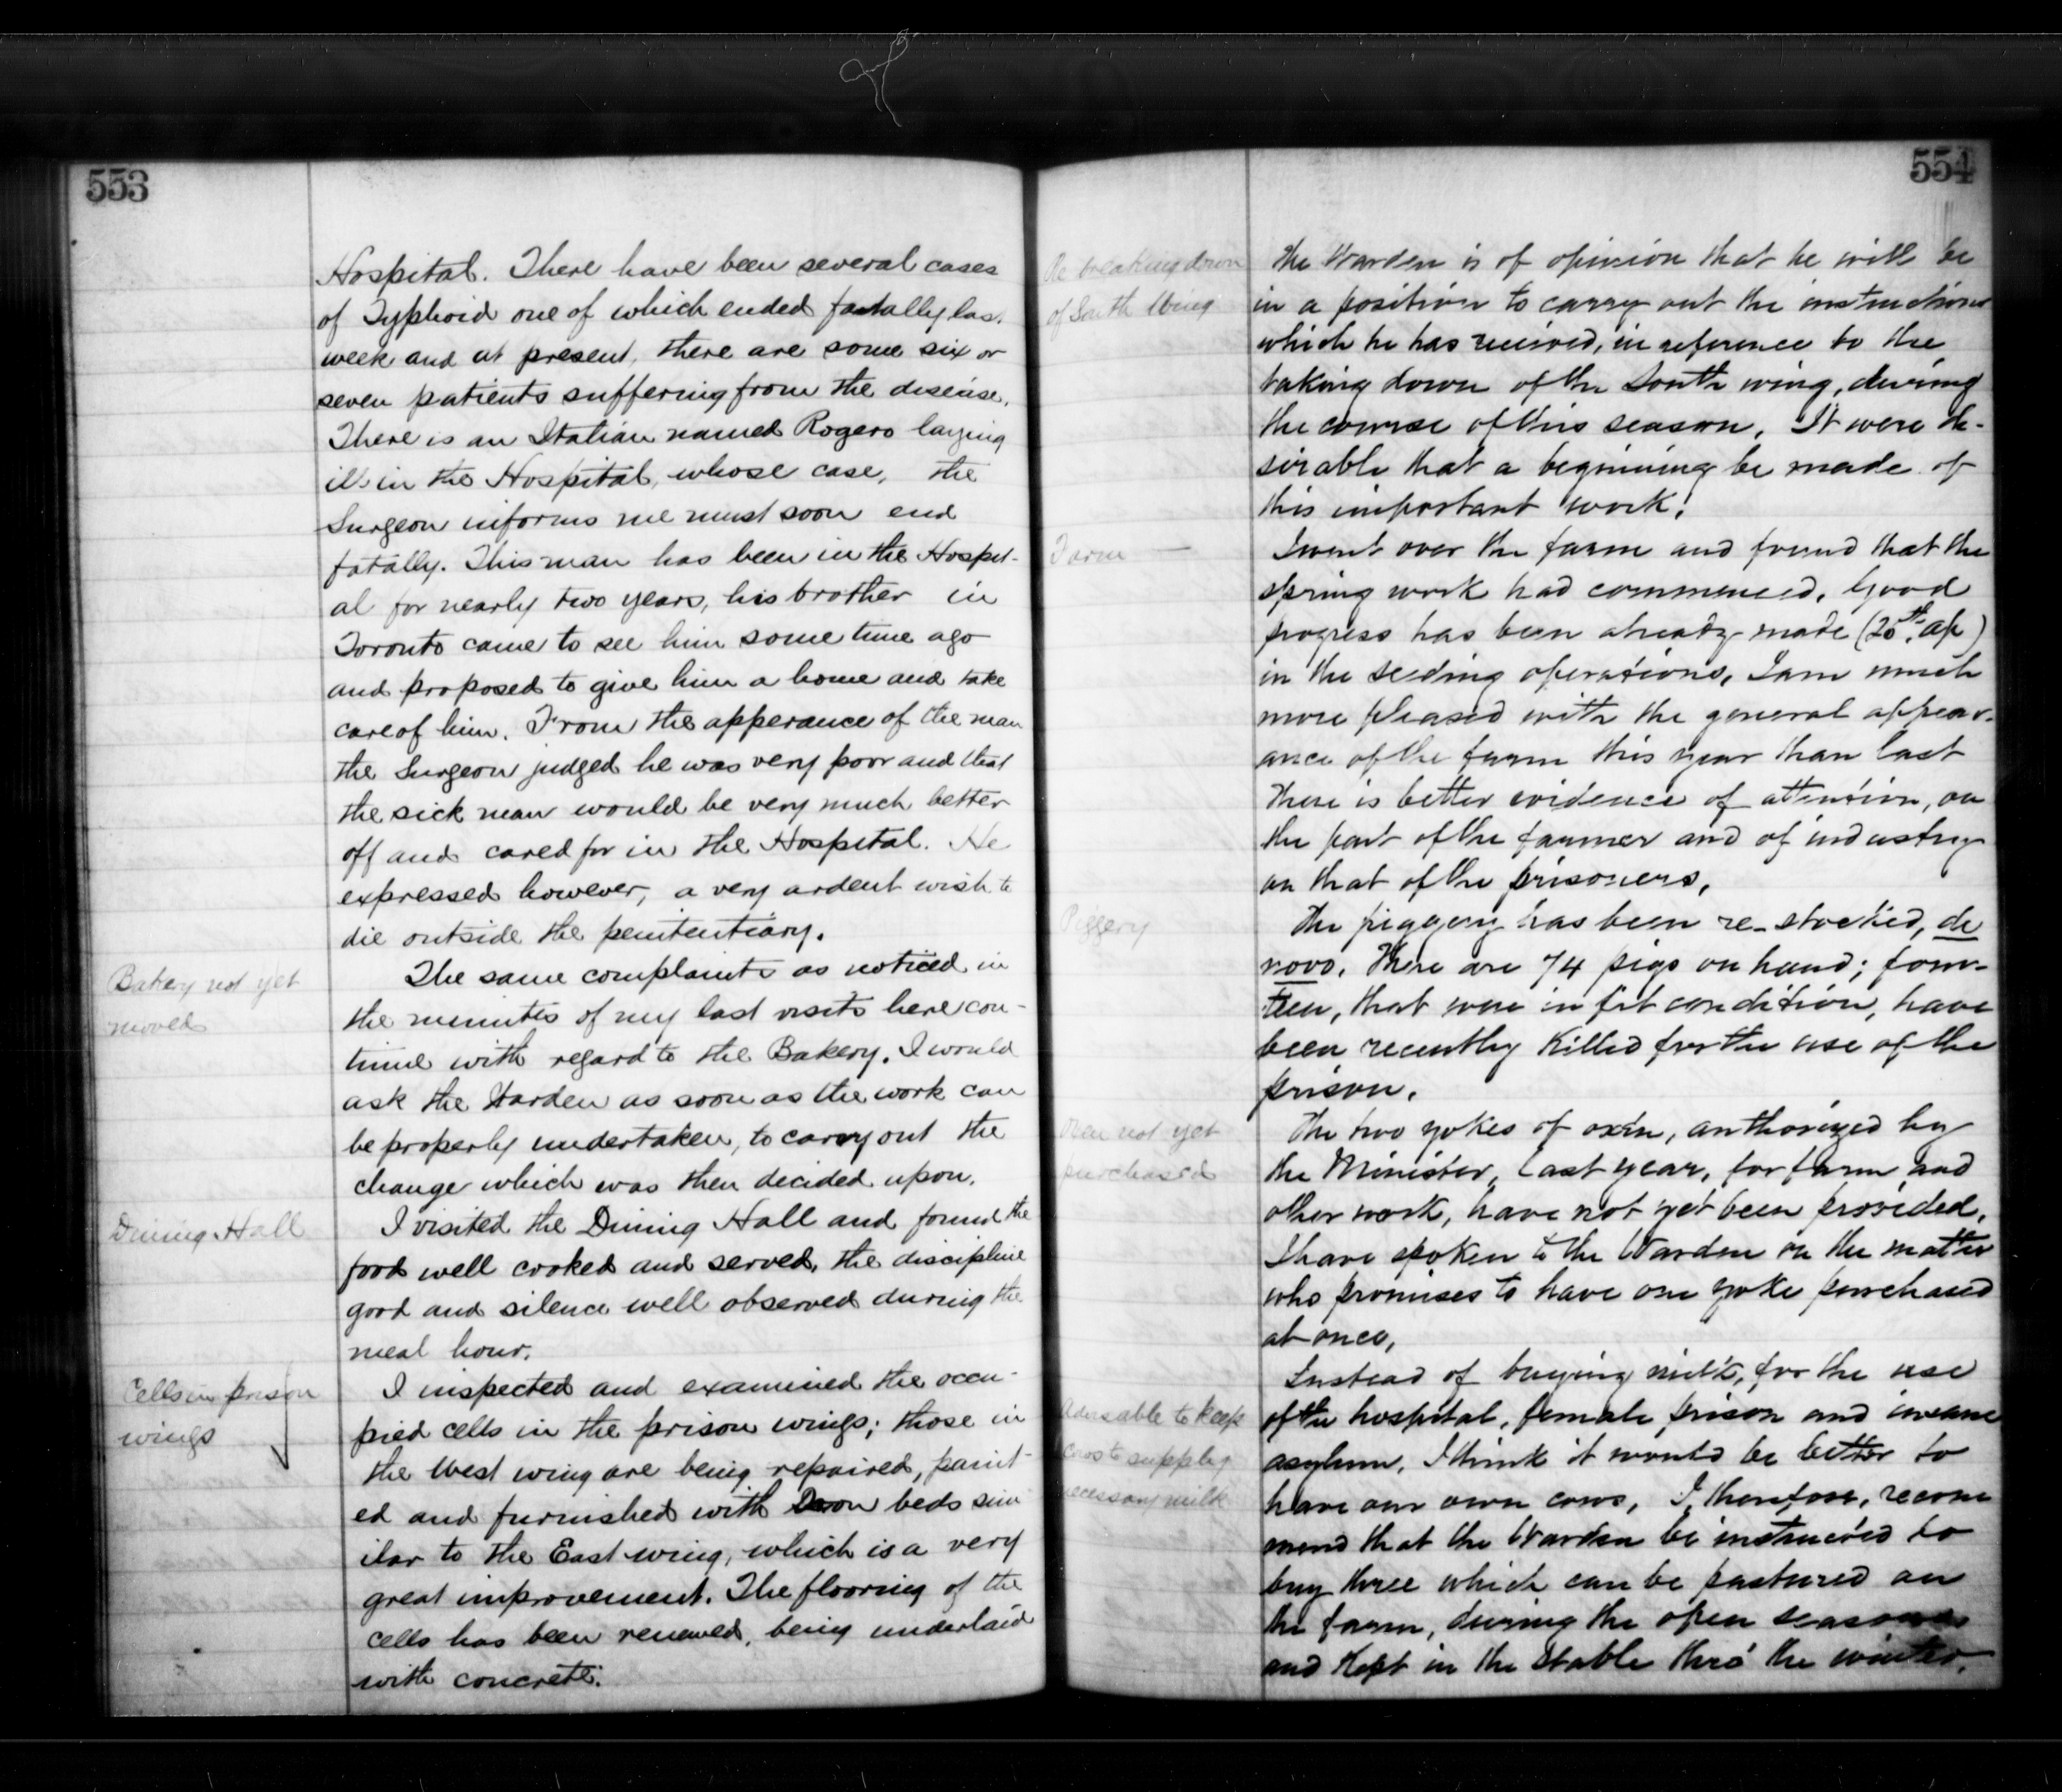 553
Hospital. There have been several cases
of Typhoid one of which ended fatally las.
week and at present, there are some six or
seven patients suffering from the disease.
There is an Italian named Rogero laying
ill in the Hospital, whose case, the
Surgeon informs me must soon end
fatally. This man has been in the Hospit-
al for nearly two years, his brother in
Toronto came to see him some time ago
and proposed to give him a home and take
care of him. From the apperance of the man
the Surgeon judged he was very poor and that
the sick man would be very much better
off and cared for in the Hospital. He
expressed however, a very ardent wish to
die outside the penitentiary.
Bakery not yet
moved
The same complaints as noticed in
the minutes of my last visits here con-
tinue with regard to the Bakery. I would
ask the Warden as soon as the work can
be properly undertaken, to carry out the
change which was then decided upon.
Dining Hall
I visited the Dining Hall and found the
food well cooked and served, the discipline
good and silence well observed during the
meal hour.
Cells in prison
wings
I inspected and examined the occu-
pied cells in the prison wings; those in
the West wing are being repaired, paint-
ed and furnished with Iron beds sim
ilar to the East wing, which is a very
great improvement. The flooring of the
cells has been renewed, being underlaid
with concrete.
554
Re breaking down
of South Wing
The Warden is of opinion that he will be
in a position to carry out the instructions
which he has received, in reference to the
taking down of the South wing, during
the course of this season. It were de-
sirable that a beginning be made of
this important work.
Farm
I went over the farm and found that the
spring work had commenced. Good
progress has been already made (20th. Ap)
in the seeding operations. I am much
more pleased with the general appear-
ance of the farm this year than last
There is better evidence of attention, on
the part of the farmer and of industry
on that of the prisoners.
Piggery
The piggery has been re-stocked, de
novo. There are 74 pigs on hand; four-
teen, that were in fit condition, have
been recently killed for the use of the
prison.
Oxen not yet
purchased
The two yokes of oxen, authorized by
the Minister, last year, for farm and
other work, have not yet been provided.
I have spoken to the Warden on the matter
who promises to have one yoke purchased
at once.
Advisable to keep
cows to supply
necessary milk
Instead of buying milk, for the use
of the hospital, female prison and insane
asylum, I think it would be better to
have our own cows, I, therefore, recom
mend that the Warden be instructed to
buy three which can be pastured on
the farm, during the open seasons
and kept in the stable thro' the winter.